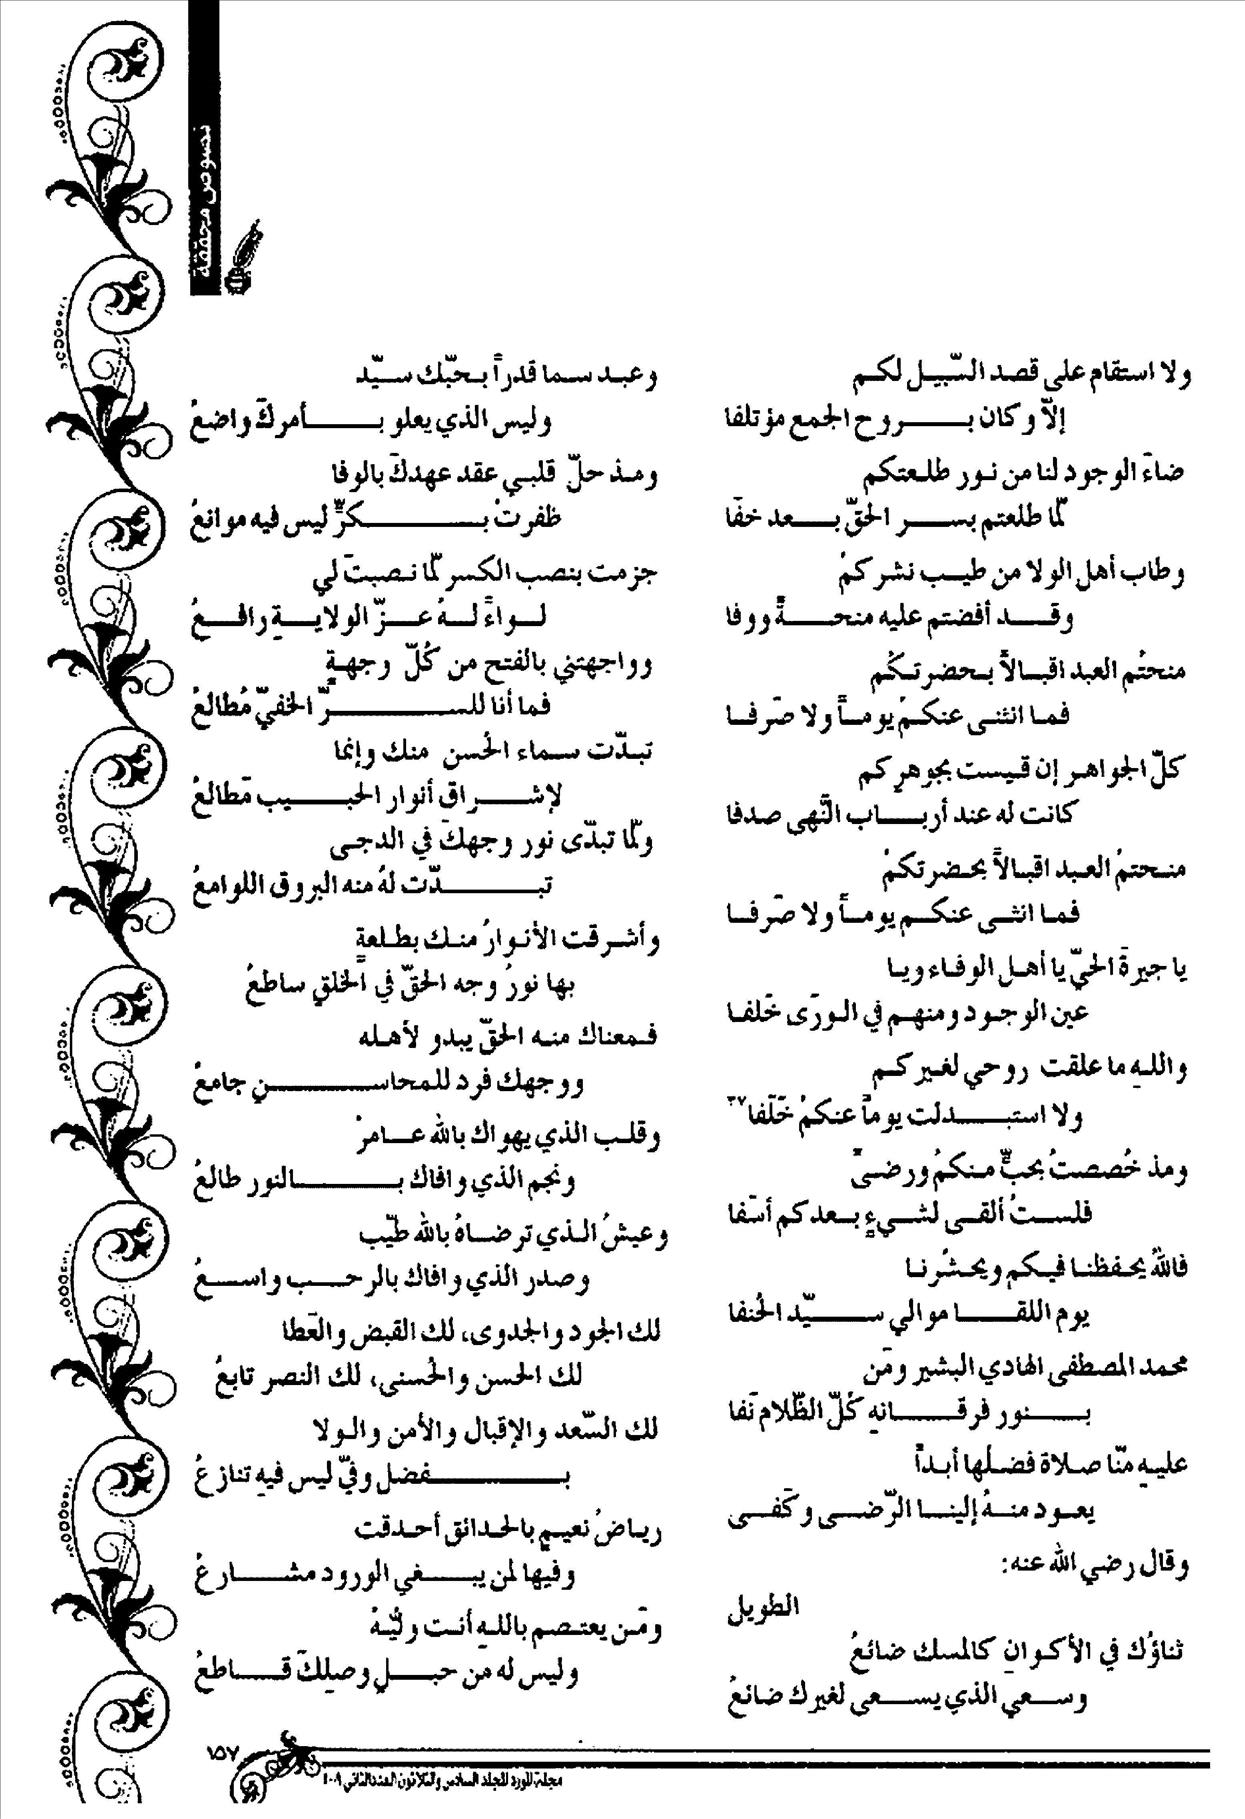 نصوص محققة
ولا استقام على قصد السّبيل لكم
إلّا وكان بروح الجمع مؤتلفا
ضاءَ الوجود لنا من نور طلعتكم
لمّا طلعتم بسر الحقّ بعد خفَا
وطاب أهل الولا من طيب نشركمْ
وقد أفضتم عليه منحةً ووفا
منحتُم العبد اقبالاً بحضرتكُم
فما انثنى عنكمْ يوماً ولا صَرفا
كلّ الجواهر إن قيست بجوهرِكم
كانت له عند أرباب النُّهى صدفا
منحتمُ العبد اقبالاً بحضرتكمْ
فما انثى عنكم يوماً ولا صَرفا
يا جيرةَ الحيّ يا أهل الوفاء ويا
عين الوجود ومنهم في الورَى خَلفا
واللهِ ما علقت روحي لغيركم
ولا استبدلت يوماً عنكمْ خَلَفا٣٧
ومذ خُصصتُ بحبٍّ منكمْ ورضىً
فلستُ ألقى لشيءٍ بعدكم أسَفا
فاللهُ يحفظنا فيكم ويحشُرنا
يوم اللقا موالي سيّد الحُنفا
محمد المصطفى الهادي البشير ومَن
بنور فرقانهِ كُلّ الظّلام نَفا
عليهِ منّا صلاة فضلُها أبداً
يعود منهُ إلينا الرّضى وكَفى
وقال رضي الله عنه:
الطويل
ثناؤك في الأكوانِ كالمسك ضائعُ
وسعي الذي يسعى لغيرك ضائعُ
وعبد سما قدراً بحبّك سيّد
وليس الذي يعلو بأمركَ واضعُ
ومذ حلّ قلبي عقد عهدكَ بالوفا
ظفرتُ بكرٍّ ليس فيه موانعُ
جزمت بنصب الكسر لمّا نصبتَ لي
لواءً لهُ عزّ الولايةِ رافعُ
وواجهتني بالفتح من كُلّ وجهةٍ
فما أنا للسرّ الخفيّ مُطالعُ
تبدّت سماء الحُسن منك وإنما
لإشراق أنوار الحبيب مَطالعُ
ولمّا تبدّى نور وجهكَ في الدجى
تبدّت لهُ منه البروق اللوامعُ
وأشرقت الأنوارُ منك بطلعةٍ
بها نورُ وجه الحقّ في الخلقِ ساطعُ
فمعناك منه الحقّ يبدو لأهله
ووجهك فرد للمحاسن جامعُ
وقلب الذي يهواك بالله عامرْ
ونجم الذي وافاك بالنور طالعُ
وعيشُ الذي ترضاهُ بالله طيّب
وصدر الذي وافاك بالرحب واسعُ
لك الجود والجدوى، لك القبض والعَطا
لك الحسن والحُسنى، لك النصر تابعُ
لك السّعد والإقبال والأمن والولا
بفضل وفيّ ليس فيهِ تنازعُ
رياضُ نعيمٍ بالحدائق أحدقت
وفيها لمن يبغي الورود مشارعُ
ومَن يعتصم باللهِ أنت وليُّهُ
وليس له من حبلِ وصلِكَ قاطعُ
١٥٧
مجلة المورد المجلد السادس والثلاثون العدد الثاني ٢٠٠٩